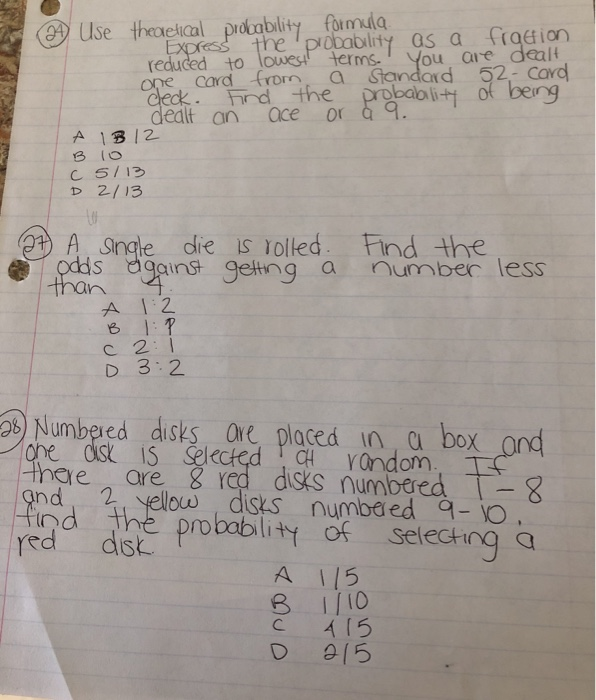 24) Use theoretical probability formula.
Express the probability as a fraction
reduced to lowest terms. You are dealt
one card from a standard 52-card
deck. Find the probability of being
dealt an ace or a 9.
A 13/2
B 10
C 5/13
D 2/13
27) A single die is rolled. Find the
odds against getting a number less
than 4.
A 1:2
B 1:1
C 2:1
D 3:2
28) Numbered disks are placed in a box and
one disk is selected at random. If
there are 8 red disks numbered 1-8
and 2 yellow disks numbered 9-10,
find the probability of selecting a
red disk.
A 1/5
B 1/10
C 4/5
D 2/5